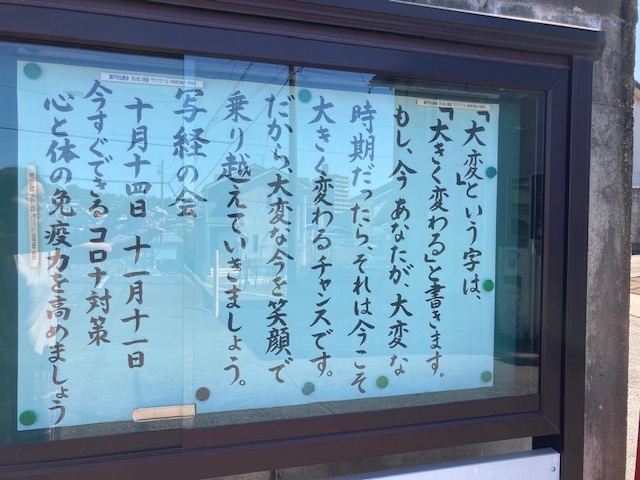 「大変」という字は、
「大きく変わる」と書きます。
もし、今あなたが、大変な
時期だったら、それは今こそ
大きく変わるチャンスです。
だから、大変な今を笑顔で
乗り越えていきましょう。
写経の会
十月十四日 十一月十一日
今すぐできるコロナ対策
心と体の免疫力を高めましょう